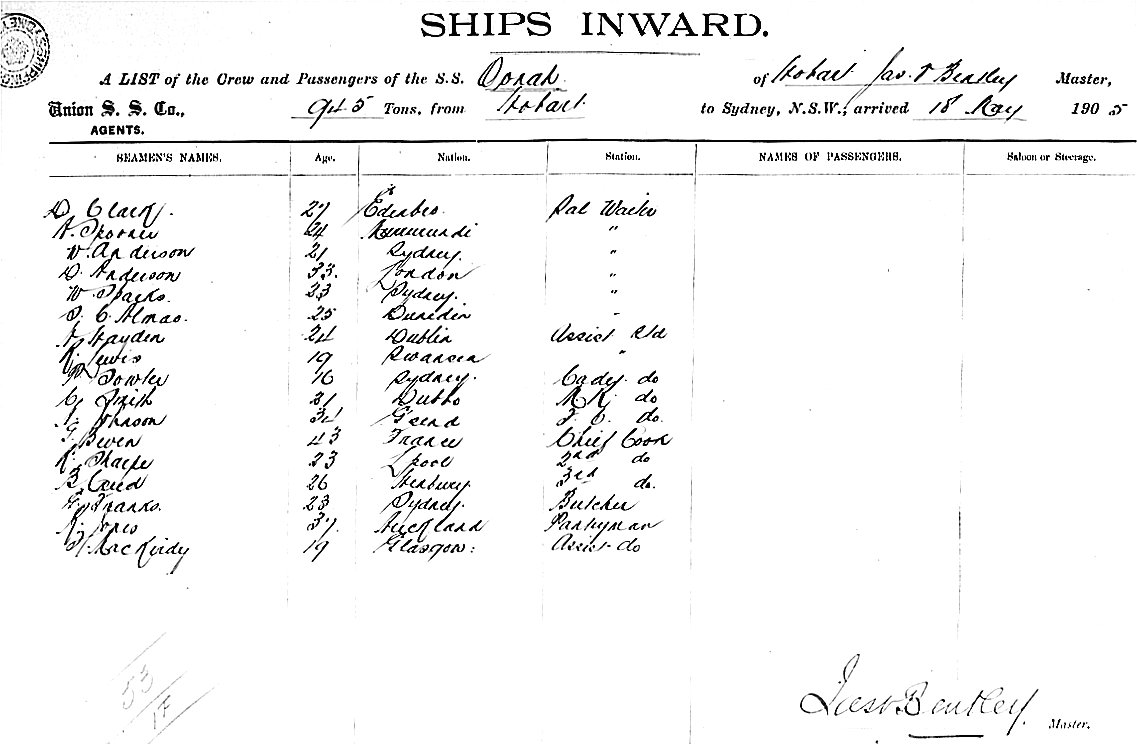 SHIPS INWARD.
A LIST of the Crew and Passengers of the S.S. Oonah of Hobart Jas. T Bentley Master,
Union S. S. Co., 945 Tons, from Hobart to Sydney, N.S.W., arrived 18 May 1905
AGENTS.
SEAMEN'S NAMES. Age. Nation. Station. NAMES OF PASSENGERS. Saloon or Steerage.
D. Clark. 27 Sal Waiter
Spooner 24 "
W. Anderson 21 Sydney. "
D. Anderson 33. London "
W. Sparks. 23 Sydney. "
25 Dunedin "
Hayden 24 Dublin Assist
Lewis 19 Swansea "
Fowler 16 Sydney. do
Smith 31 Dubbo do
Johnson 34 do.
43 France Chief Cook
Sharpe 23 L'pool 2nd do
B. Creed 26 3rd do.
Franks. 23 Sydney. Butcher
Jones 37. Auckland Pantryman
MacKirdy 19 Glasgow: Assist do
53
17
Jas T Bentley. Master.